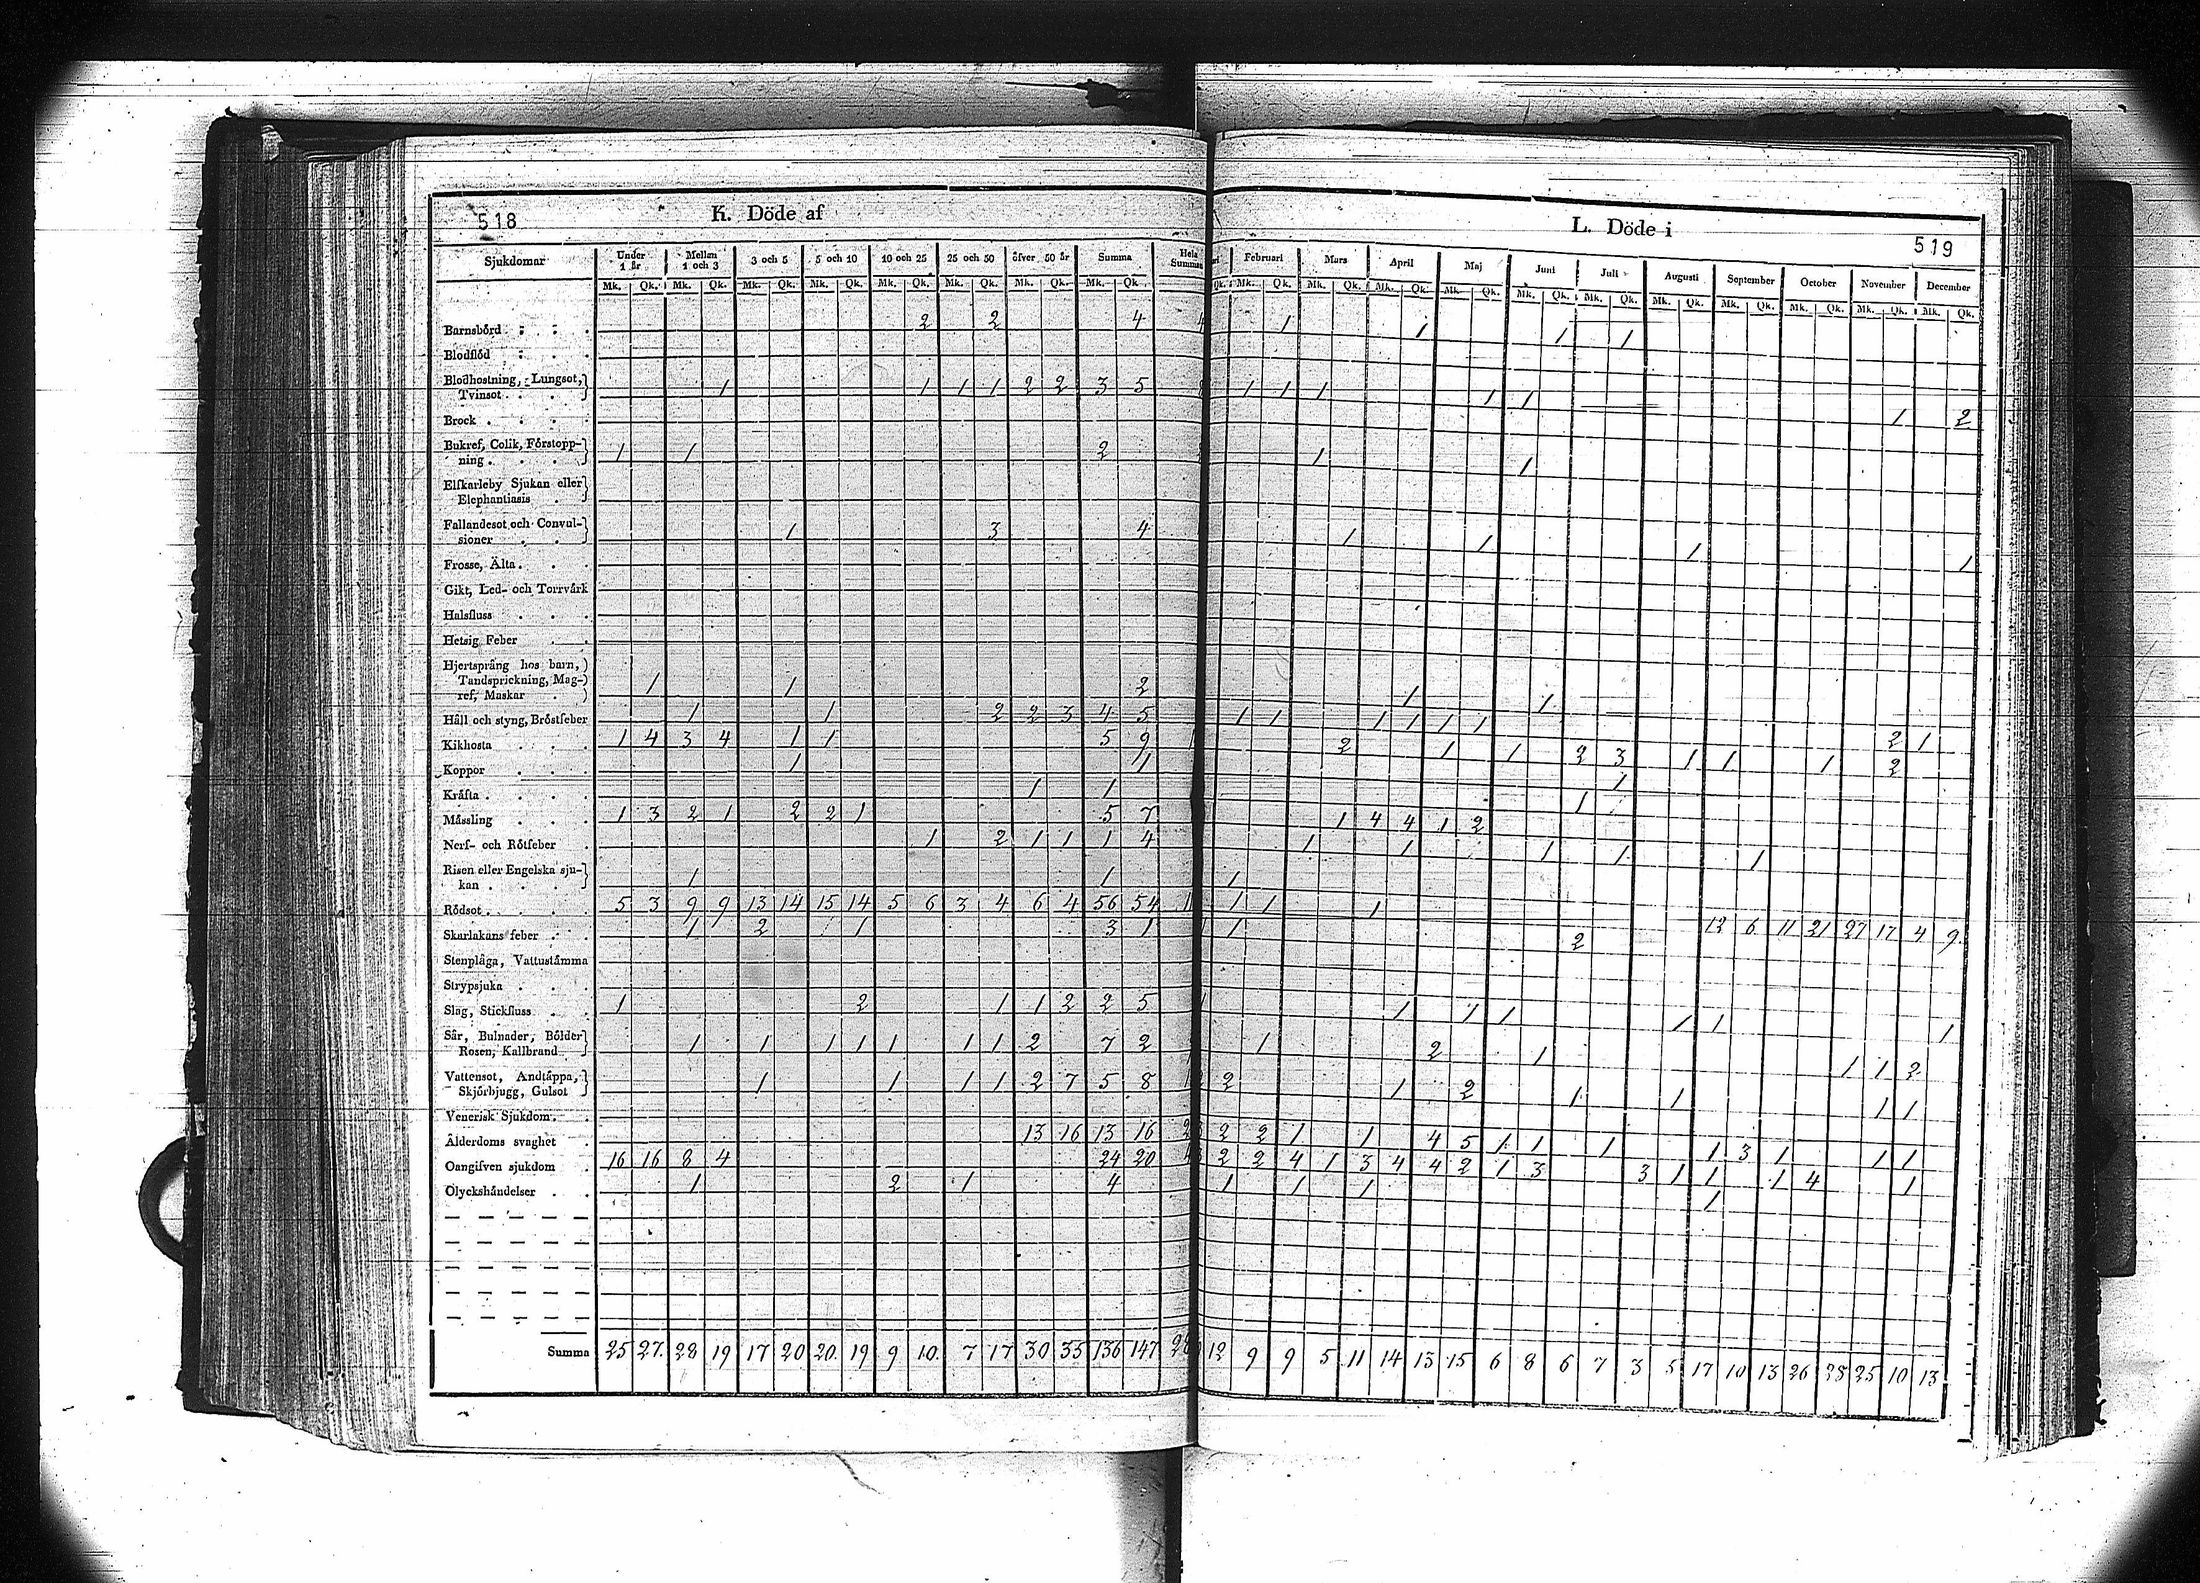 518
K. Döde af
Sjukdomar
Under 1 år Mellan 1 och 3 3 och 5 5 och 10 10 och 25 25 och 50 öfver 50 år Summa Hela Summan
Mk. Qk. Mk. Qk. Mk. Qk. Mk. Qk. Mk. Qk. Mk. Qk. Mk. Qk. Mk. Qk.
Barnsbörd 2 2 4 4
Blodflöd
Blodhostning, Lungsot,
Tvinsot 1 1 1 1 2 2 3 5
Brock
Bukref, Colik, Förstopp-
ning 1 1 2
Elfkarleby Sjukan eller
Elephantiasis
Fallandesot och Convul-
sioner 1 3 4
Frosse, Älta
Gikt, Led- och Torrvärk
Halsfluss
Hetsig Feber
Hjertsprång hos barn,
Tandsprickning, Mag-
ref, Maskar 1 1 2
Håll och styng, Bröstfeber 1 1 2 2 3 4 5
Kikhosta 1 4 3 4 1 1 5 9
Koppor 1 1
Kräfta 1 1
Mässling 1 3 2 1 2 2 1 5 7
Nerf- och Rötfeber 1 2 1 1 1 4
Risen eller Engelska sju-
kan 1 1
Rödsot 5 3 9 9 13 14 15 14 5 6 3 4 6 4 56 54
Skarlakans feber 1 2 1 3 1
Stenplåga, Vattustämma
Strypsjuka
Slag, Stickfluss 1 2 1 1 2 2 5
Sår, Bulnader, Bölder
Rosen, Kallbrand 1 1 1 1 1 1 1 2 7 2
Vattensot, Andtäppa,
Skjörbjugg, Gulsot 1 1 1 1 2 7 5 8
Venerisk Sjukdom
Ålderdoms svaghet 13 16 13 16
Oangifven sjukdom 16 16 8 4 24 20
Olyckshändelser 1 2 1 4
Summa 25 27 28 19 17 20 20 19 9 10 7 17 30 35 136 147
L. Döde i
519
Februari Mars April Maj Juni Juli Augusti September October November December
Qk. Mk. Qk. Mk. Qk. Mk. Qk. Mk. Qk. Mk. Qk. Mk. Qk. Mk. Qk. Mk. Qk. Mk. Qk. Mk. Qk. Mk. Qk.
1 1 1 1
1 1 1 1 1 1 2
1 1
1 1 1 1
1 1
1 1 1 1 1 1 2 1
2 1 1 2 3 1 1 1 2
1
1
1 4 4 1 2
1 1 1 1 1
1
1 1 1 12 6 11 21 27 17 4 9
1 1 2
1 1 1 1 1 1 1
1 2 1 1 1 2
2 2 1 2 1 1 1 1
2 2 1 1 4 5 1 1 1 1 3 1 1 1
2 2 4 1 3 4 4 2 1 3 3 1 1 1 4 1
1 1 1 1
12 9 9 5 11 14 13 15 6 8 6 7 3 5 17 10 13 26 38 25 10 13